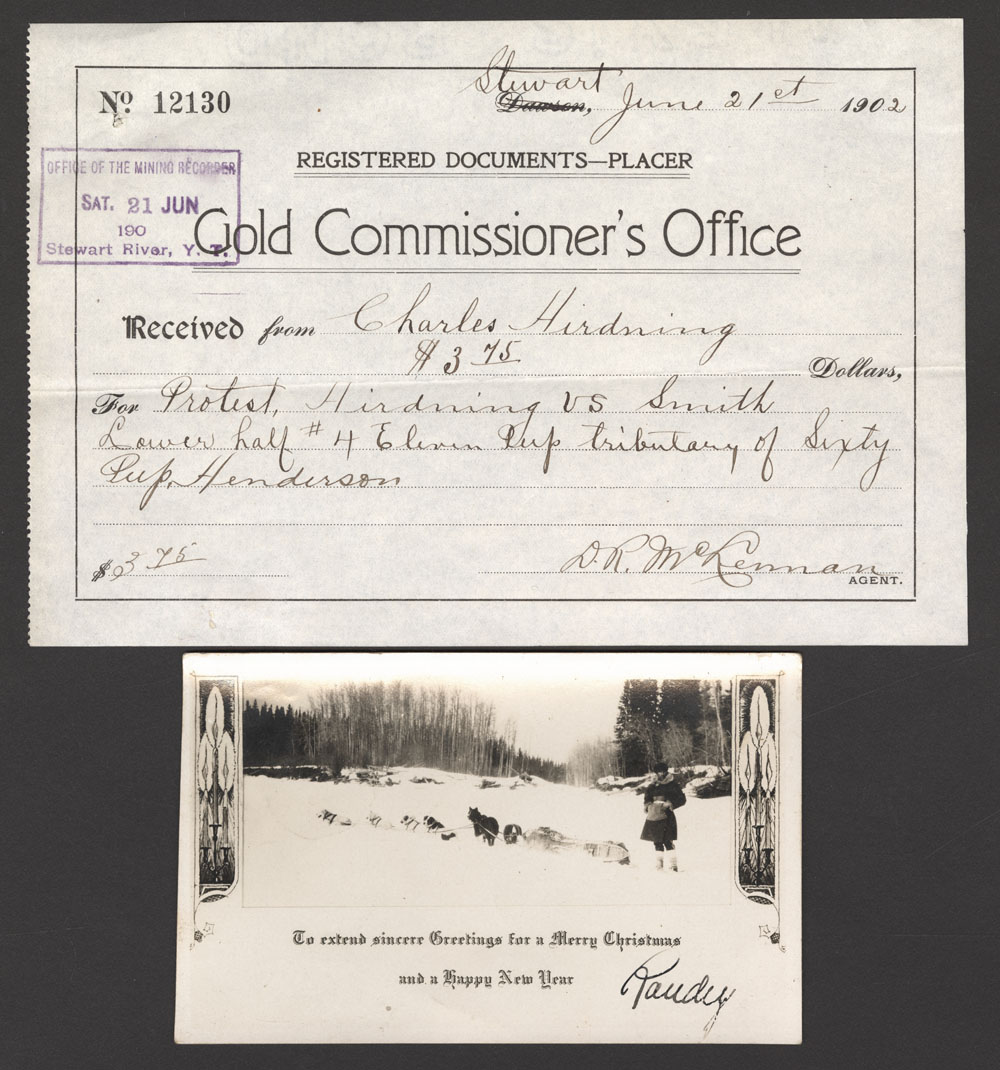 Stewart
No 12130 Dawson, June 21st 1902
REGISTERED DOCUMENTS—PLACER
OFFICE OF THE MINING RECORDER
SAT. 21 JUN
190
Stewart River, Y. T.
Gold Commissioner's Office
Received from Charles Hirdning
$3 75
Dollars,
For Protest, Hirdning VS Smith
Lower half #4 Eleven Pup tributary of Sixty
Pup, Henderson
$3 75
D.R. McKennan
AGENT.
To extend sincere Greetings for a Merry Christmas
and a Happy New Year